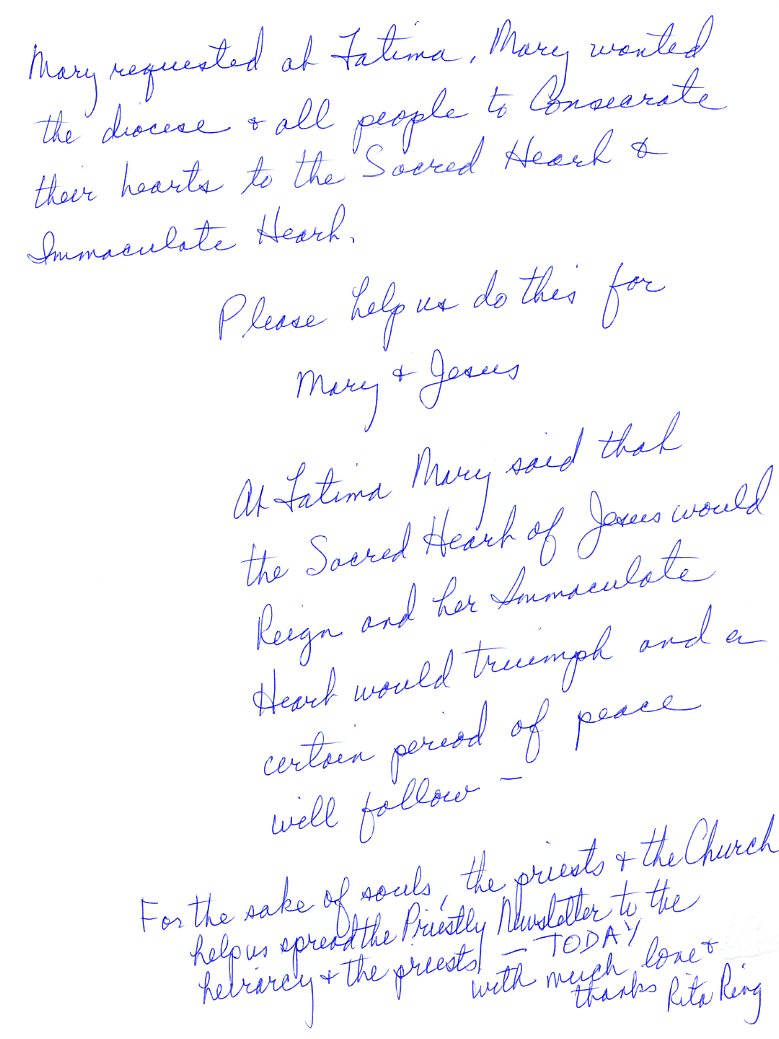 Mary requested at Fatima. Mary wanted
the diocese & all people to Consecrate
their hearts to the Sacred Heart &
Immaculate Heart.
Please help us do this for
Mary & Jesus
At Fatima Mary said that
the Sacred Heart of Jesus would
Reign and her Immaculate
Heart would triumph and a
certain period of peace
will follow –
For the sake of souls, the priests & the Church
help us spread the Priestly Newsletter to the
heirarcy & the priests – TODAY
with much love &
thanks Rita Ring